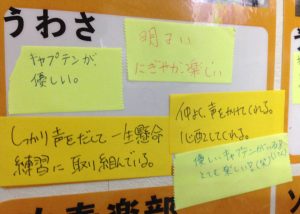 うわさ
キャプテンが、
優しい。
明るい
にぎやか、楽しい
しっかり声をだして一生懸命
練習に取り組んでいる。
仲よく、声をかけてくれる。
心配してくれる。
優しいキャプテンがいる
とても楽しい
楽部